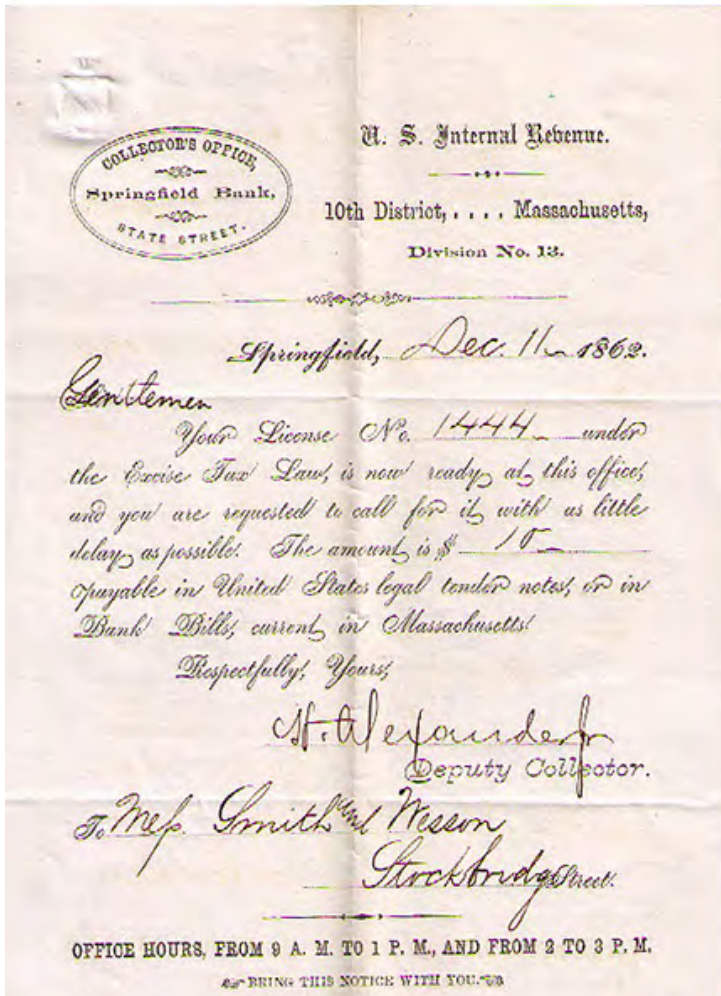 COLLECTOR'S OFFICE,
Springfield Bank,
STATE STREET.
U. S. Internal Revenue.
10th District, . . . . Massachusetts,
Division No. 13.
Springfield, Dec. 11 1862.
Gentlemen
Your License No. 1444 under
the Excise Tax Law, is now ready at this office,
and you are requested to call for it with as little
delay as possible. The amount is $
payable in United States legal tender notes, or in
Bank Bills, current in Massachusetts.
Respectfully, Yours,
H. Alexander Jr
Deputy Collector.
To Mess. Smith and Wesson
Stockbridge Street.
OFFICE HOURS, FROM 9 A. M. TO 1 P. M., AND FROM 2 TO 3 P. M.
BRING THIS NOTICE WITH YOU.